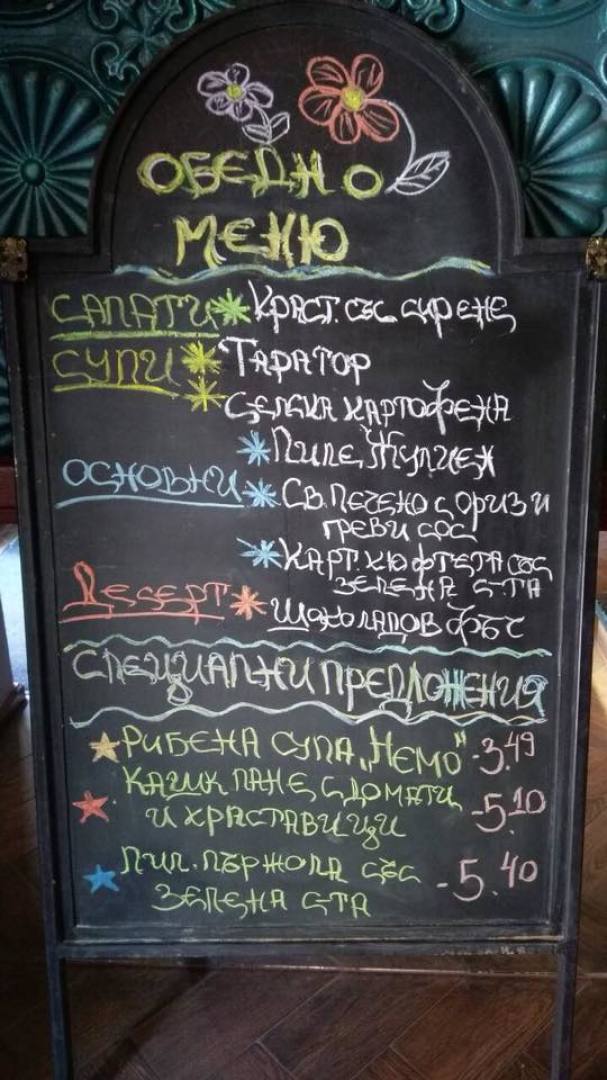 ОБЕДНО
МЕНЮ
САЛАТИ * КРАСТ. СЪС СИРЕНЕ
СУПИ * ТАРАТОР
* СЕЛСКА КАРТОФЕНА
* ПИЛЕ ЖУЛИЕН
ОСНОВНИ * СВ. ПЕЧЕНО С ОРИЗ И
ГРЕВИ СОС
* КАРТ. КЮФТЕТА СЪС
ЗЕЛЕНА С-ТА
ДЕСЕРТ * ШОКОЛАДОВ ФЪС
СПЕЦИАЛНИ ПРЕДЛОЖЕНИЯ
РИБЕНА СУПА „НЕМО" - 3.49
КАШК. ПАНЕ С ДОМАТИ
И КРАСТАВИЦИ - 5.10
ПИЛ. ПЪРЖОЛА СЪС
ЗЕЛЕНА С-ТА - 5.40